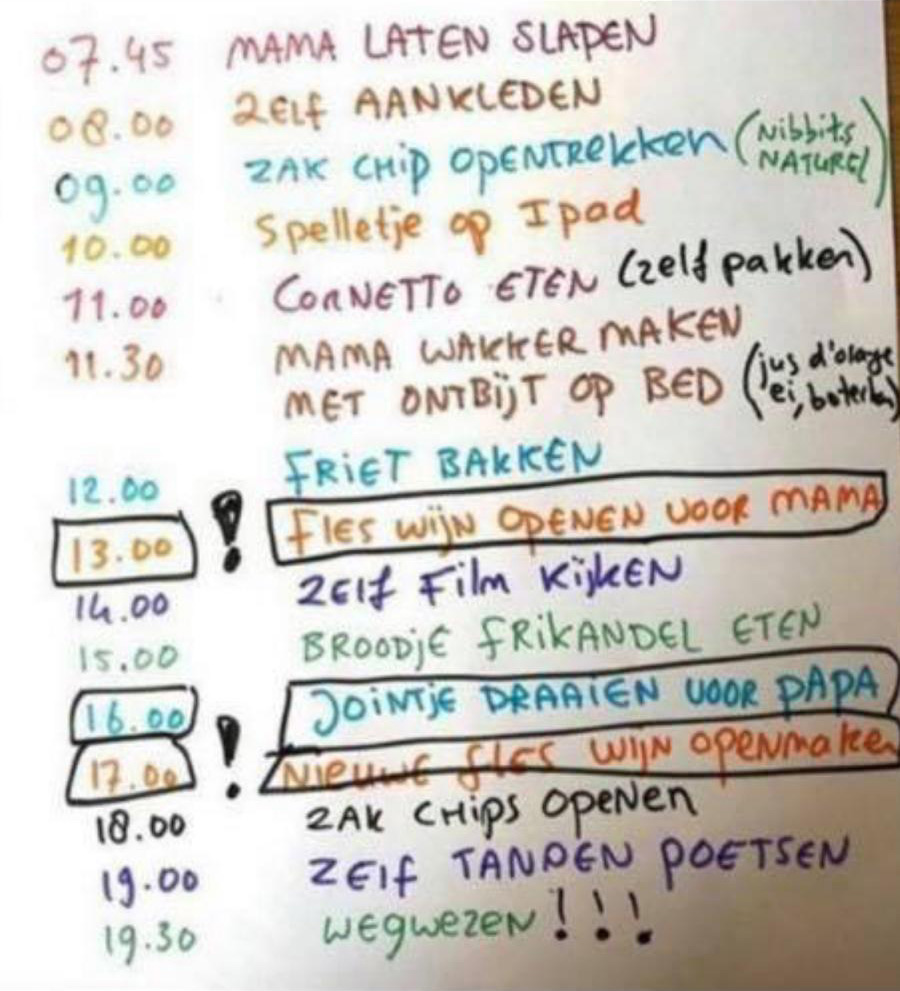 07.45 MAMA LATEN SLAPEN
08.00 ZELF AANKLEDEN
09.00 ZAK CHIP OPENTREKKEN (NIBBITS NATUREL)
10.00 Spelletje op Ipad
11.00 CORNETTO ETEN (zelf pakken)
11.30 MAMA WAKKER MAKEN
MET ONTBIJT OP BED (jus d'orange ei, boterham)
12.00 FRIET BAKKEN
13.00 ! FLES WIJN OPENEN VOOR MAMA
14.00 ZELF FILM KIJKEN
15.00 BROODJE FRIKANDEL ETEN
16.00 ! JOINTJE DRAAIEN VOOR PAPA
17.00 NIEUWE FLES WIJN OPENMAKEN
18.00 ZAK CHIPS OPENEN
19.00 ZELF TANDEN POETSEN
19.30 WEGWEZEN!!!